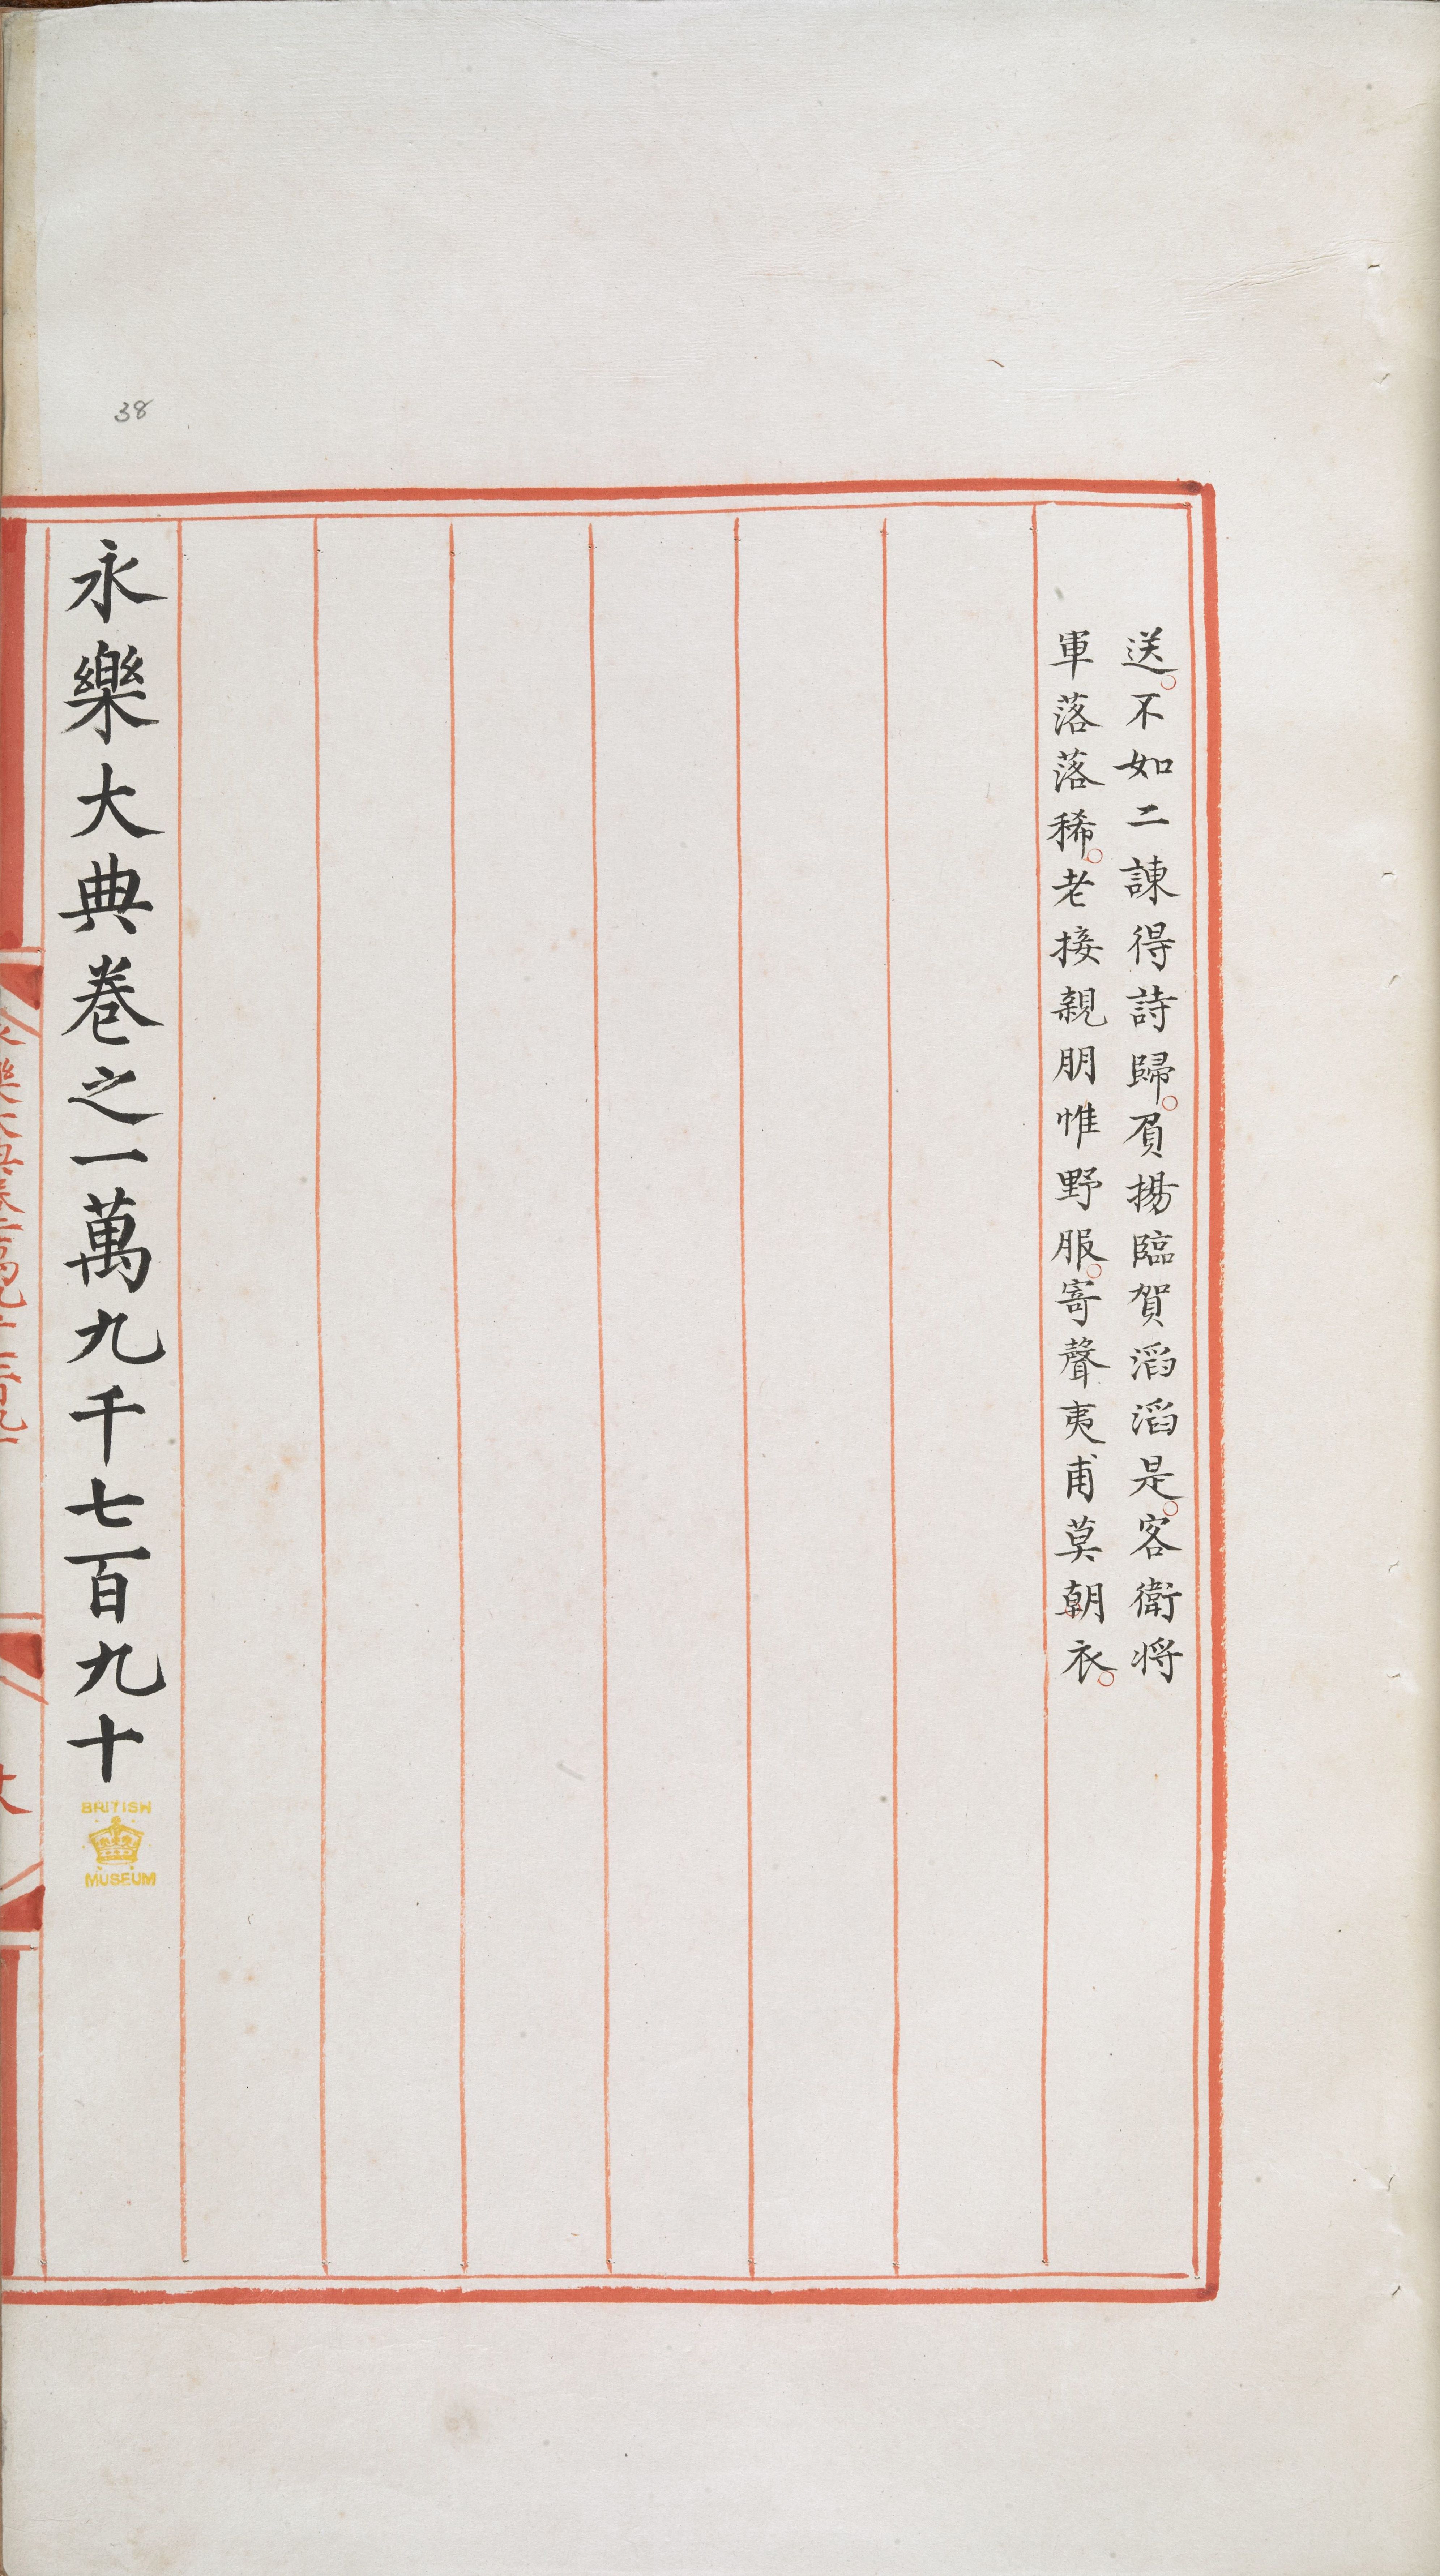 送。不如二諫得詩歸。負揚臨賀滔滔是。客衛將
軍落落稀。老接親朋惟野服。寄聲夷甫莫朝衣。
永樂大典卷之一萬九千七百九十
38
BRITISH
MUSEUM